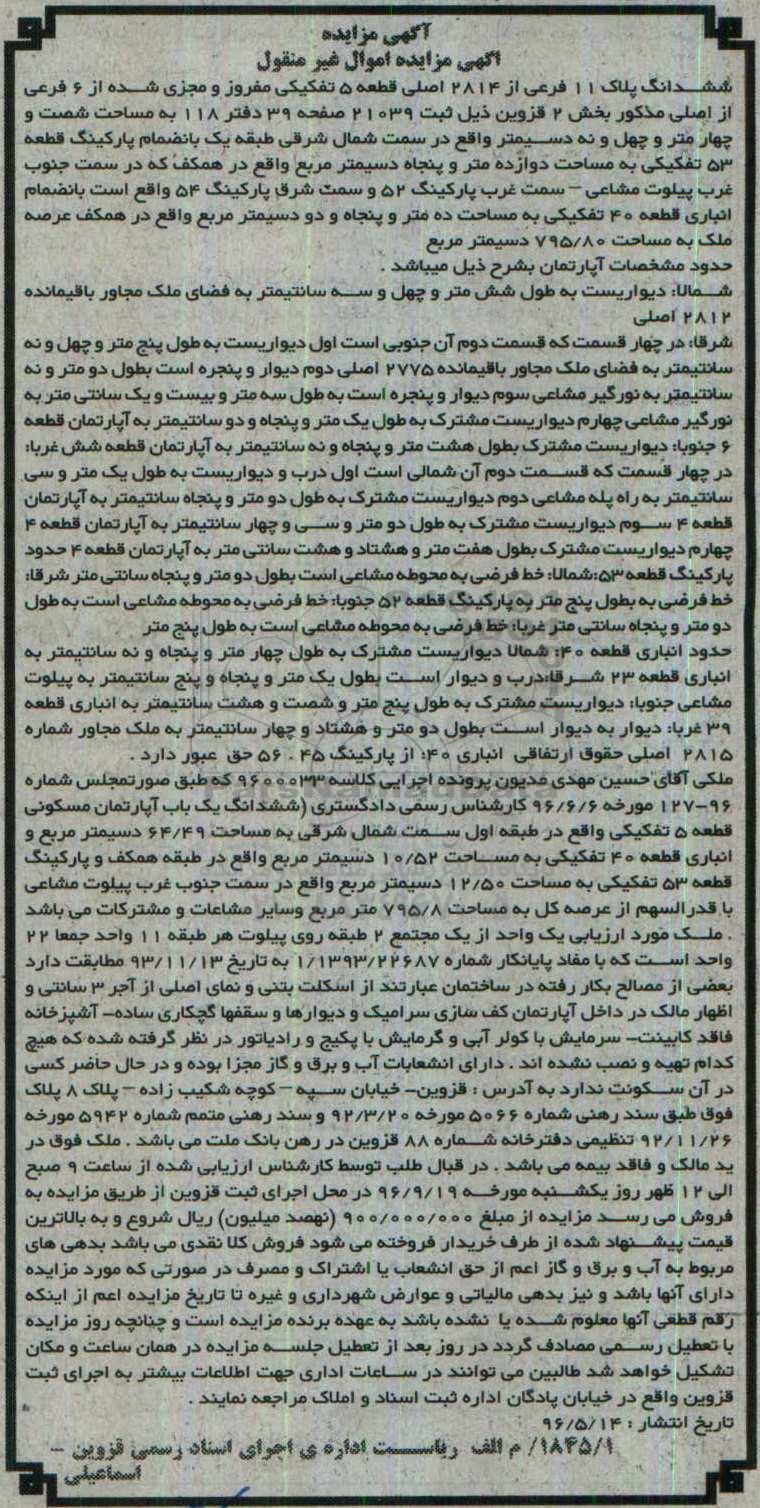 آگهی مزایده
آگهی مزایده اموال غیر منقول
ششدانگ پلاک ۱۱ فرعی از ۲۸۱۴ اصلی قطعه ۵ تفکیکی مفروز و مجزی شده از ۶ فرعی
از اصلی مذکور بخش ۲ قزوین ذیل ثبت ۲۱۰۳۹ صفحه ۳۹ دفتر ۱۱۸ به مساحت شصت و
چهار متر و چهل و نه دسیمتر واقع در سمت شمال شرقی طبقه یک بانضمام پارکینگ قطعه
۵۳ تفکیکی به مساحت دوازده متر و پنجاه دسیمتر مربع واقع در همکف که در سمت جنوب
غرب پیلوت مشاعی – سمت غرب پارکینگ ۵۲ و سمت شرق پارکینگ ۵۴ واقع است بانضمام
انباری قطعه ۴۰ تفکیکی به مساحت ده متر و پنجاه و دو دسیمتر مربع واقع در همکف عرصه
ملک به مساحت ۷۹۵/۸۰ دسیمتر مربع
حدود مشخصات آپارتمان بشرح ذیل میباشد .
شمالا: دیواریست به طول شش متر و چهل و سه سانتیمتر به فضای ملک مجاور باقیمانده
۲۸۱۲ اصلی
شرقا: در چهار قسمت که قسمت دوم آن جنوبی است اول دیواریست به طول پنج متر و چهل و نه
سانتیمتر به فضای ملک مجاور باقیمانده ۲۷۷۵ اصلی دوم دیوار و پنجره است بطول دو متر و نه
سانتیمتر به نورگیر مشاعی سوم دیوار و پنجره است به طول سه متر و بیست و یک سانتی متر به
نورگیر مشاعی چهارم دیواریست مشترک به طول یک متر و پنجاه و دو سانتیمتر به آپارتمان قطعه
۶ جنوبا: دیواریست مشترک بطول هشت متر و پنجاه و نه سانتیمتر به آپارتمان قطعه شش غربا:
در چهار قسمت که قسمت دوم آن شمالی است اول درب و دیواریست به طول یک متر و سی
سانتیمتر به راه پله مشاعی دوم دیواریست مشترک به طول دو متر و پنجاه سانتیمتر به آپارتمان
قطعه ۴ سوم دیواریست مشترک به طول دو متر و سی و چهار سانتیمتر به آپارتمان قطعه ۴
چهارم دیواریست مشترک بطول هفت متر و هشتاد و هشت سانتی متر به آپارتمان قطعه ۴ حدود
پارکینگ قطعه ۵۳:شمالا: خط فرضی به محوطه مشاعی است بطول دو متر و پنجاه سانتی متر شرقا:
خط فرضی به بطول پنج متر به پارکینگ قطعه ۵۲ جنوبا: خط فرضی به محوطه مشاعی است به طول
دو متر و پنجاه سانتی متر غربا: خط فرضی به محوطه مشاعی است به طول پنج متر
حدود انباری قطعه ۴۰: شمالا دیواریست مشترک به طول چهار متر و پنجاه و نه سانتیمتر به
انباری قطعه ۲۳ شرقا:درب و دیوار است بطول یک متر و پنجاه و پنج سانتیمتر به پیلوت
مشاعی جنوبا: دیواریست مشترک به طول پنج متر و شصت و هشت سانتیمتر به انباری قطعه
۳۹ غربا: دیوار به دیوار است بطول دو متر و هشتاد و چهار سانتیمتر به ملک مجاور شماره
۲۸۱۵ اصلی حقوق ارتفاقی انباری ۴۰: از پارکینگ ۴۵ . ۵۶ حق عبور دارد .
ملکی آقای حسین مهدی مدیون پرونده اجرایی کلاسه ۹۶۰۰۰۳۳ که طبق صورتمجلس شماره
۹۶–۱۲۷ مورخه ۹۶/۶/۶ کارشناس رسمی دادگستری (ششدانگ یک باب آپارتمان مسکونی
قطعه ۵ تفکیکی واقع در طبقه اول سمت شمال شرقی به مساحت ۶۴/۴۹ دسیمتر مربع و
انباری قطعه ۴۰ تفکیکی به مساحت ۱۰/۵۲ دسیمتر مربع واقع در طبقه همکف و پارکینگ
قطعه ۵۳ تفکیکی به مساحت ۱۲/۵۰ دسیمتر مربع واقع در سمت جنوب غرب پیلوت مشاعی
با قدرالسهم از عرصه کل به مساحت ۷۹۵/۸ متر مربع وسایر مشاعات و مشترکات می باشد
. ملک مورد ارزیابی یک واحد از یک مجتمع ۲ طبقه روی پیلوت هر طبقه ۱۱ واحد جمعا ۲۲
واحد است که با مفاد پایانکار شماره ۱/۱۳۹۳/۲۲۶۸۷ به تاریخ ۹۳/۱۱/۱۳ مطابقت دارد
بعضی از مصالح بکار رفته در ساختمان عبارتند از اسکلت بتنی و نمای اصلی از آجر ۳ سانتی و
اظهار مالک در داخل آپارتمان کف سازی سرامیک و دیوارها و سقفها گچکاری ساده– آشپزخانه
فاقد کابینت– سرمایش با کولر آبی و گرمایش با پکیج و رادیاتور در نظر گرفته شده که هیچ
کدام تهیه و نصب نشده اند . دارای انشعابات آب و برق و گاز مجزا بوده و در حال حاضر کسی
در آن سکونت ندارد به آدرس : قزوین– خیابان سپه – کوچه شکیب زاده – پلاک ۸ پلاک
فوق طبق سند رهنی شماره ۵۰۶۶ مورخه ۹۲/۳/۲۰ و سند رهنی متمم شماره ۵۹۴۲ مورخه
۹۲/۱۱/۲۶ تنظیمی دفترخانه شماره ۸۸ قزوین در رهن بانک ملت می باشد . ملک فوق در
ید مالک و فاقد بیمه می باشد . در قبال طلب توسط کارشناس ارزیابی شده از ساعت ۹ صبح
الی ۱۲ ظهر روز یکشنبه مورخه ۹۶/۹/۱۹ در محل اجرای ثبت قزوین از طریق مزایده به
فروش می رسد مزایده از مبلغ ۹۰۰/۰۰۰/۰۰۰ (نهصد میلیون) ریال شروع و به بالاترین
قیمت پیشنهاد شده از طرف خریدار فروخته می شود فروش کلا نقدی می باشد بدهی های
مربوط به آب و برق و گاز اعم از حق انشعاب یا اشتراک و مصرف در صورتی که مورد مزایده
دارای آنها باشد و نیز بدهی مالیاتی و عوارض شهرداری و غیره تا تاریخ مزایده اعم از اینکه
رقم قطعی آنها معلوم شده یا نشده باشد به عهده برنده مزایده است و چنانچه روز مزایده
با تعطیل رسمی مصادف گردد در روز بعد از تعطیل جلسه مزایده در همان ساعت و مکان
تشکیل خواهد شد طالبین می توانند در ساعات اداری جهت اطلاعات بیشتر به اجرای ثبت
قزوین واقع در خیابان پادگان اداره ثبت اسناد و املاک مراجعه نمایند .
تاریخ انتشار : ۹۶/۵/۱۴
۱۸۴۵/۱/ م الف ریاست اداره ی اجرای اسناد رسمی قزوین –
اسماعیلی